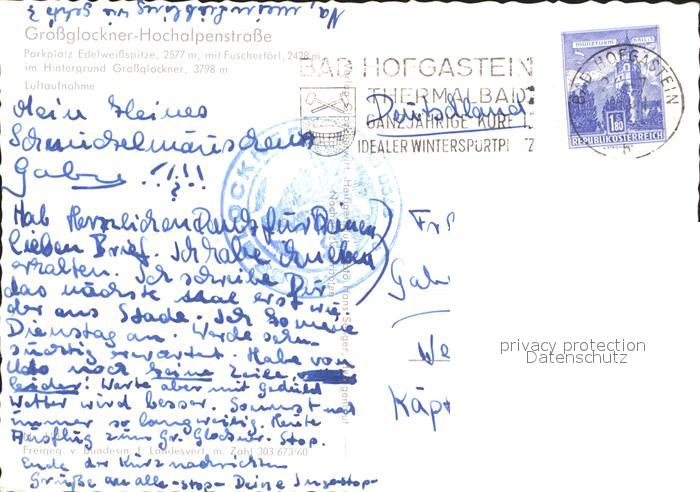 Na, mein Liebling wie geht's ?
Großglockner-Hochalpenstraße
Parkplatz Edelweißspitze, 2577 m, mit Fuschertörl, 2428 m
im Hintergrund Großglockner, 3798 m
Luftaufnahme
BAD HOFGASTEIN
THERMALBAD
GANZJÄHRIGE KUR
IDEALER WINTERSPORTPL
MÜNZTURM HALL I. T.
1.80
REPUBLIK ÖSTERREICH
BAD HOFGASTEIN
Deutschland
Mein kleines
Gaby ...!?!!
Hab herzlichen Dank für Deinen
lieben Brief. Ich habe ihn eben
erhalten. Ich schreibe Dir
das nächste Mal erst wie-
der aus Stade. Ich komme
Dienstag an. Werde sehn-
süchtig erwartet. Habe von
Udo noch keine Zeile
leider! Warte aber mit Geduld
Wetter wird besser. Sonnst
immer so langweilig. Heute
Ausflug zum Gr. Glockner. Stop.
Freigeg. v. Bundesm. f. Landesvert. m. Zahl 303 673/60
Ende der Kurznachrichten
Grüße an alle -stop- Deine
Gab
We
Käpt
privacy protection
Datenschutz